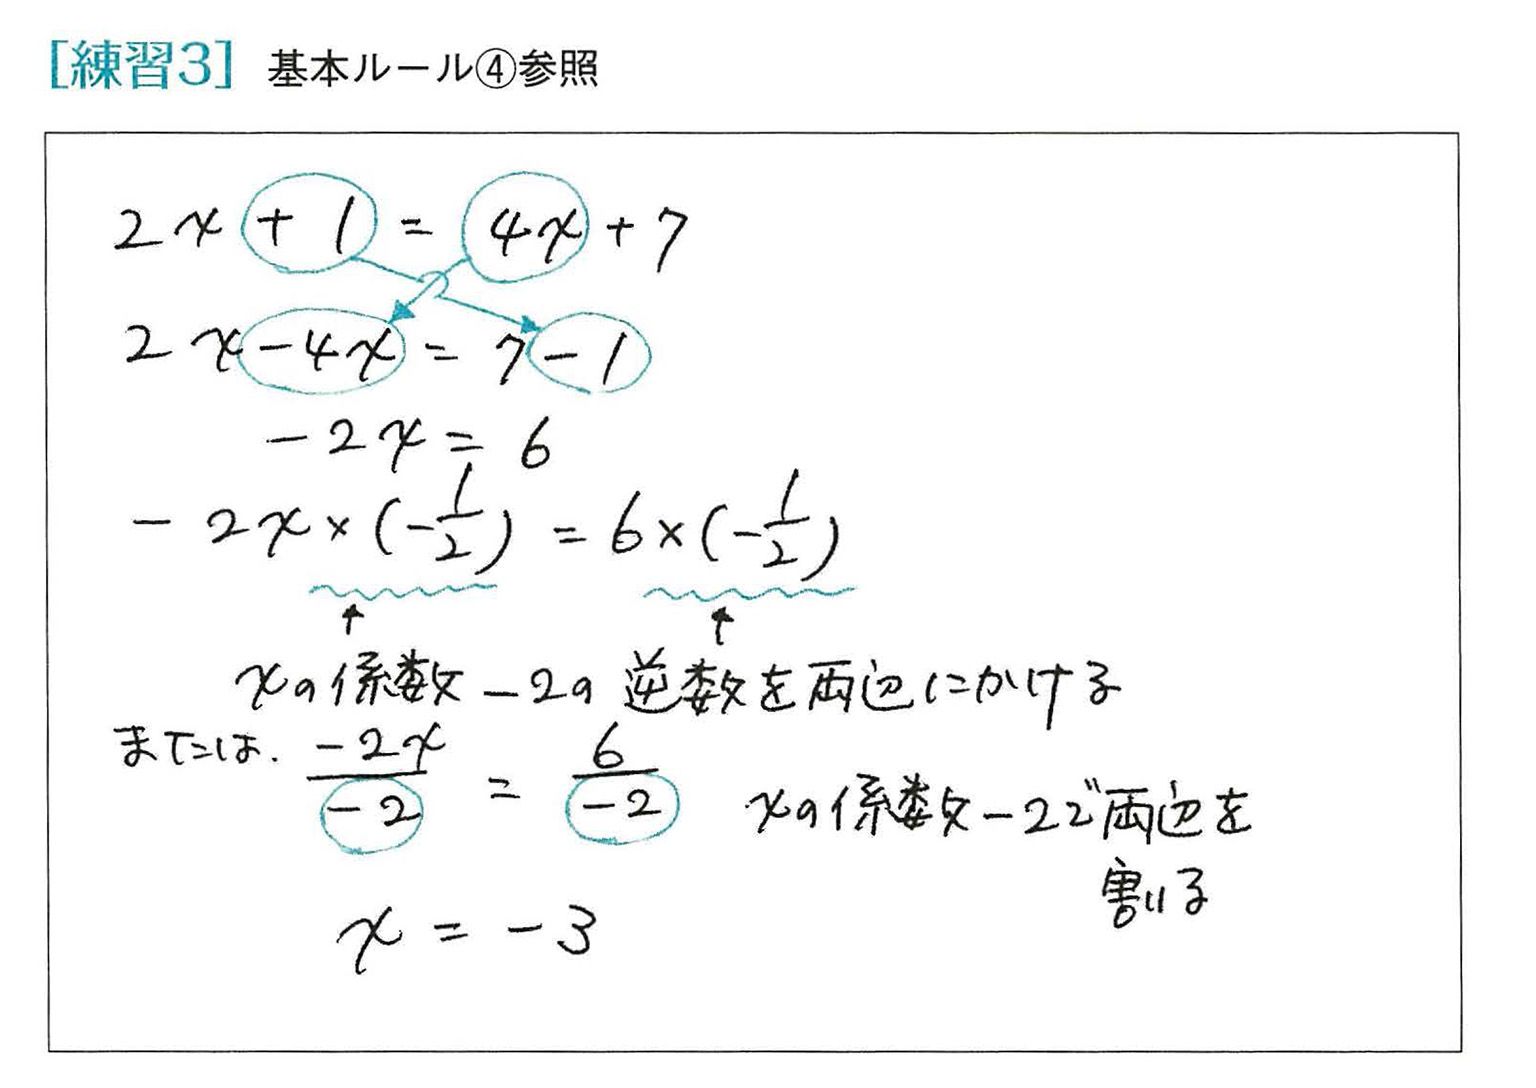 [練習3] 基本ルール④参照
2x + 1 = 4x + 7
2x - 4x = 7 - 1
-2x = 6
-2x × (-1/2) = 6 × (-1/2)
xの係数-2の逆数を両辺にかける
または. -2x/-2 = 6/-2 xの係数-2で両辺を
割る
x = -3